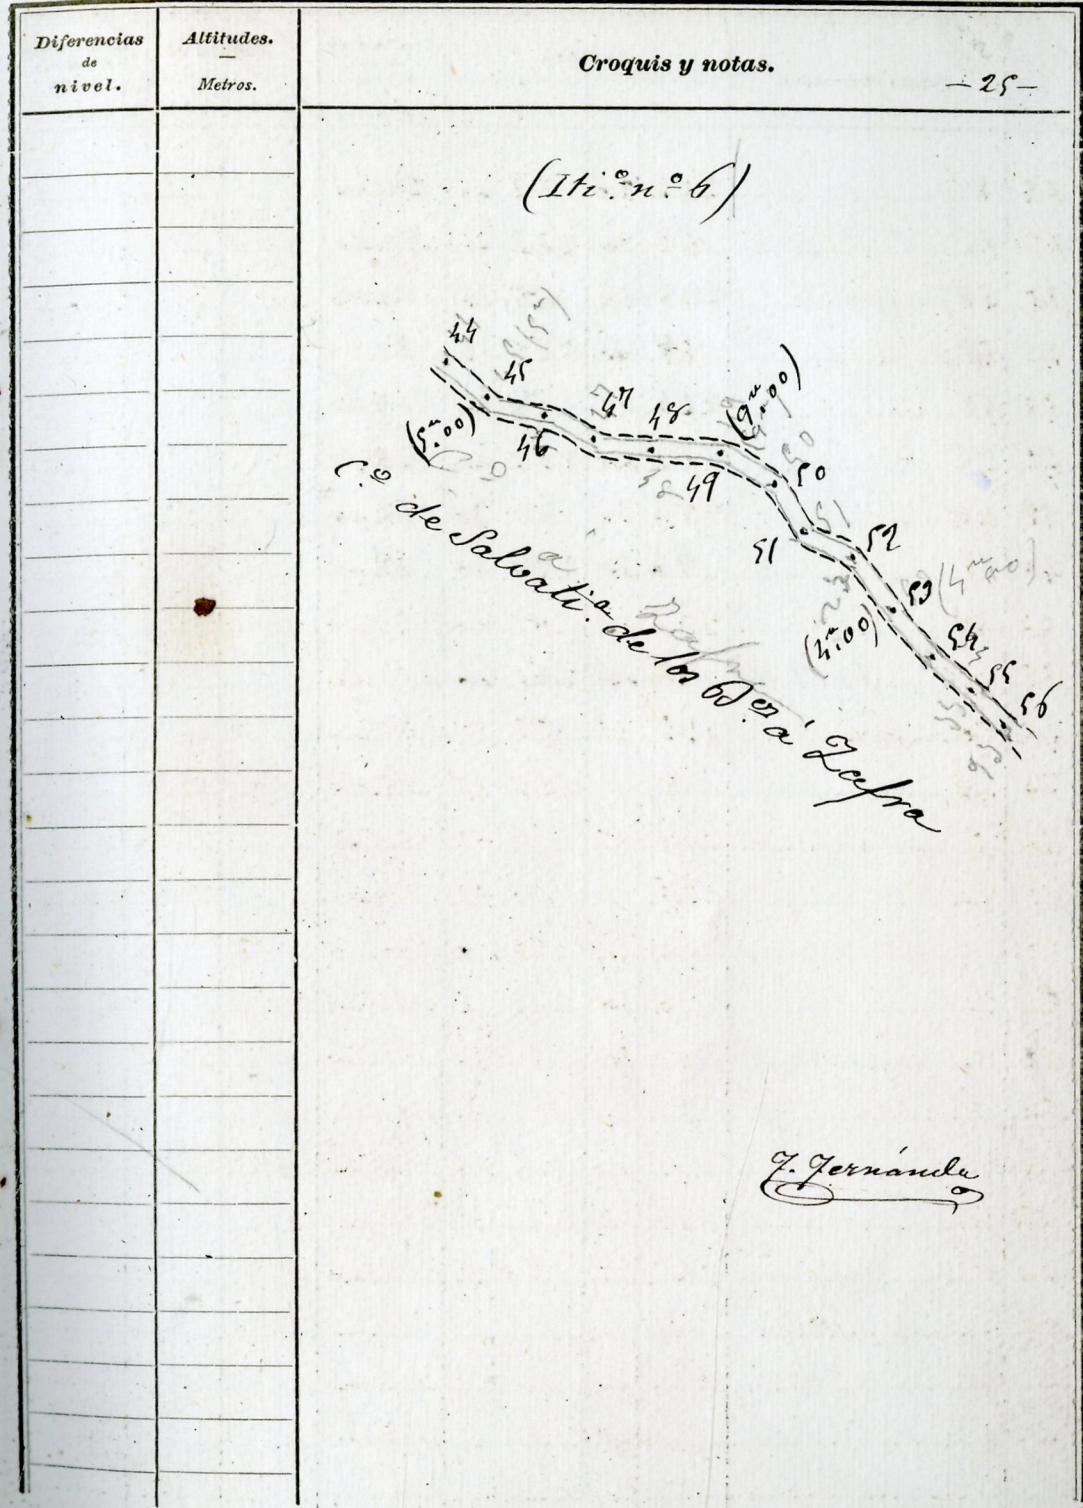 Diferencias
de
nivel.
Altitudes.
Metros.
Croquis y notas.
-25-
(Iti.º n.º 6)
44
45
46
47
48
49
50
51
52
53
54
55
56
(5m.00)
(9m.00)
(4m.00)
C.º de Salvati.ª de los B.es á Zafra